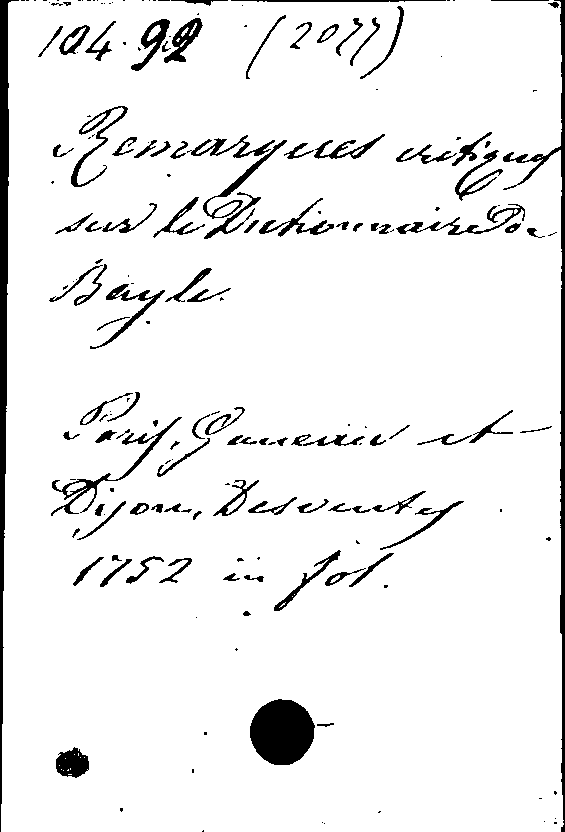 104.92 (2077)
Remarques critiques
sur le Dictionnaire De
Bayle.
Paris, Ganeau et
Dijon, Desventes
1752 in fol.